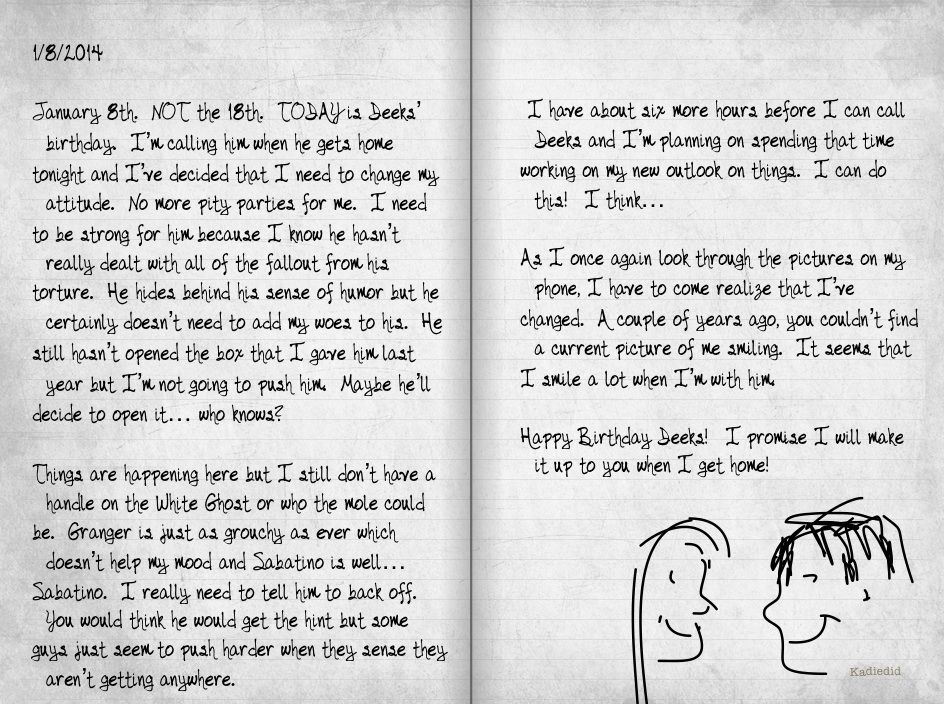 1/8/2014
January 8th. NOT the 18th. TODAY is Deeks'
birthday. I'm calling him when he gets home
tonight and I've decided that I need to change my
attitude. No more pity parties for me. I need
to be strong for him because I know he hasn't
really dealt with all of the fallout from his
torture. He hides behind his sense of humor but he
certainly doesn't need to add my woes to his. He
still hasn't opened the box that I gave him last
year but I'm not going to push him. Maybe he'll
decide to open it... who knows?
Things are happening here but I still don't have a
handle on the White Ghost or who the mole could
be. Granger is just as grouchy as ever which
doesn't help my mood and Sabatino is well...
Sabatino. I really need to tell him to back off.
You would think he would get the hint but some
guys just seem to push harder when they sense they
aren't getting anywhere.
I have about six more hours before I can call
Deeks and I'm planning on spending that time
working on my new outlook on things. I can do
this! I think...
As I once again look through the pictures on my
phone, I have to come realize that I've
changed. A couple of years ago, you couldn't find
a current picture of me smiling. It seems that
I smile a lot when I'm with him.
Happy Birthday Deeks! I promise I will make
it up to you when I get home!
Kadiedid